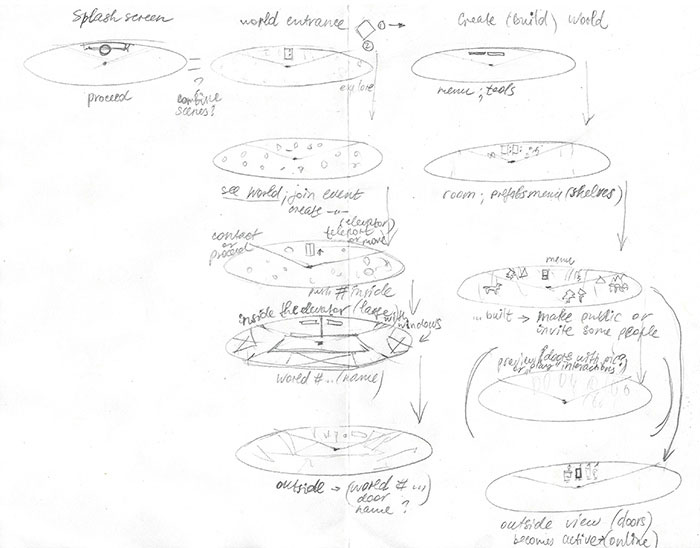 Splash screen
proceed
?
combine
scenes?
world entrance
1
2
explore
see world; join event
create -"-
(elevator)
teleport
or move
contact
or
proceed
# inside
inside the elevator / large
with
windows
world # ... (name)
outside → (world # ...)
door
name ?
Create (build) world
menu; tools
room; prefabs menu (shelves)
menu
... built → make public or
invite some people
preview (doors with pics
or play interactions?)
outside view (doors)
becomes active (online)